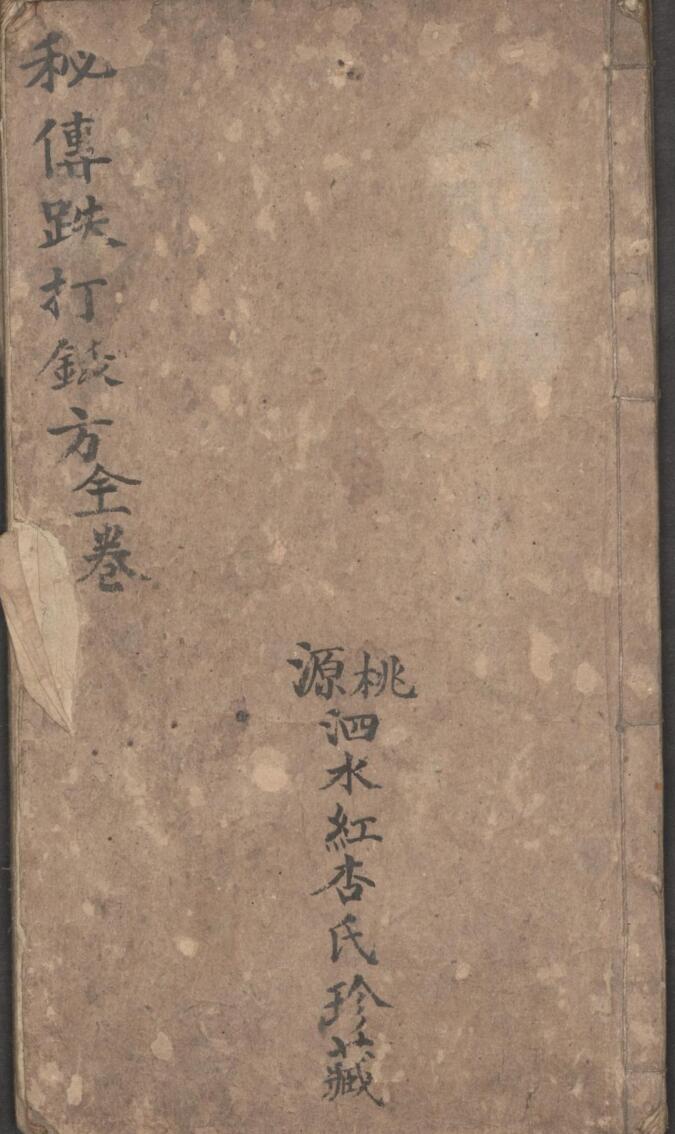 桃源
泗水紅杏氏珍藏
秘傳跌打方全卷